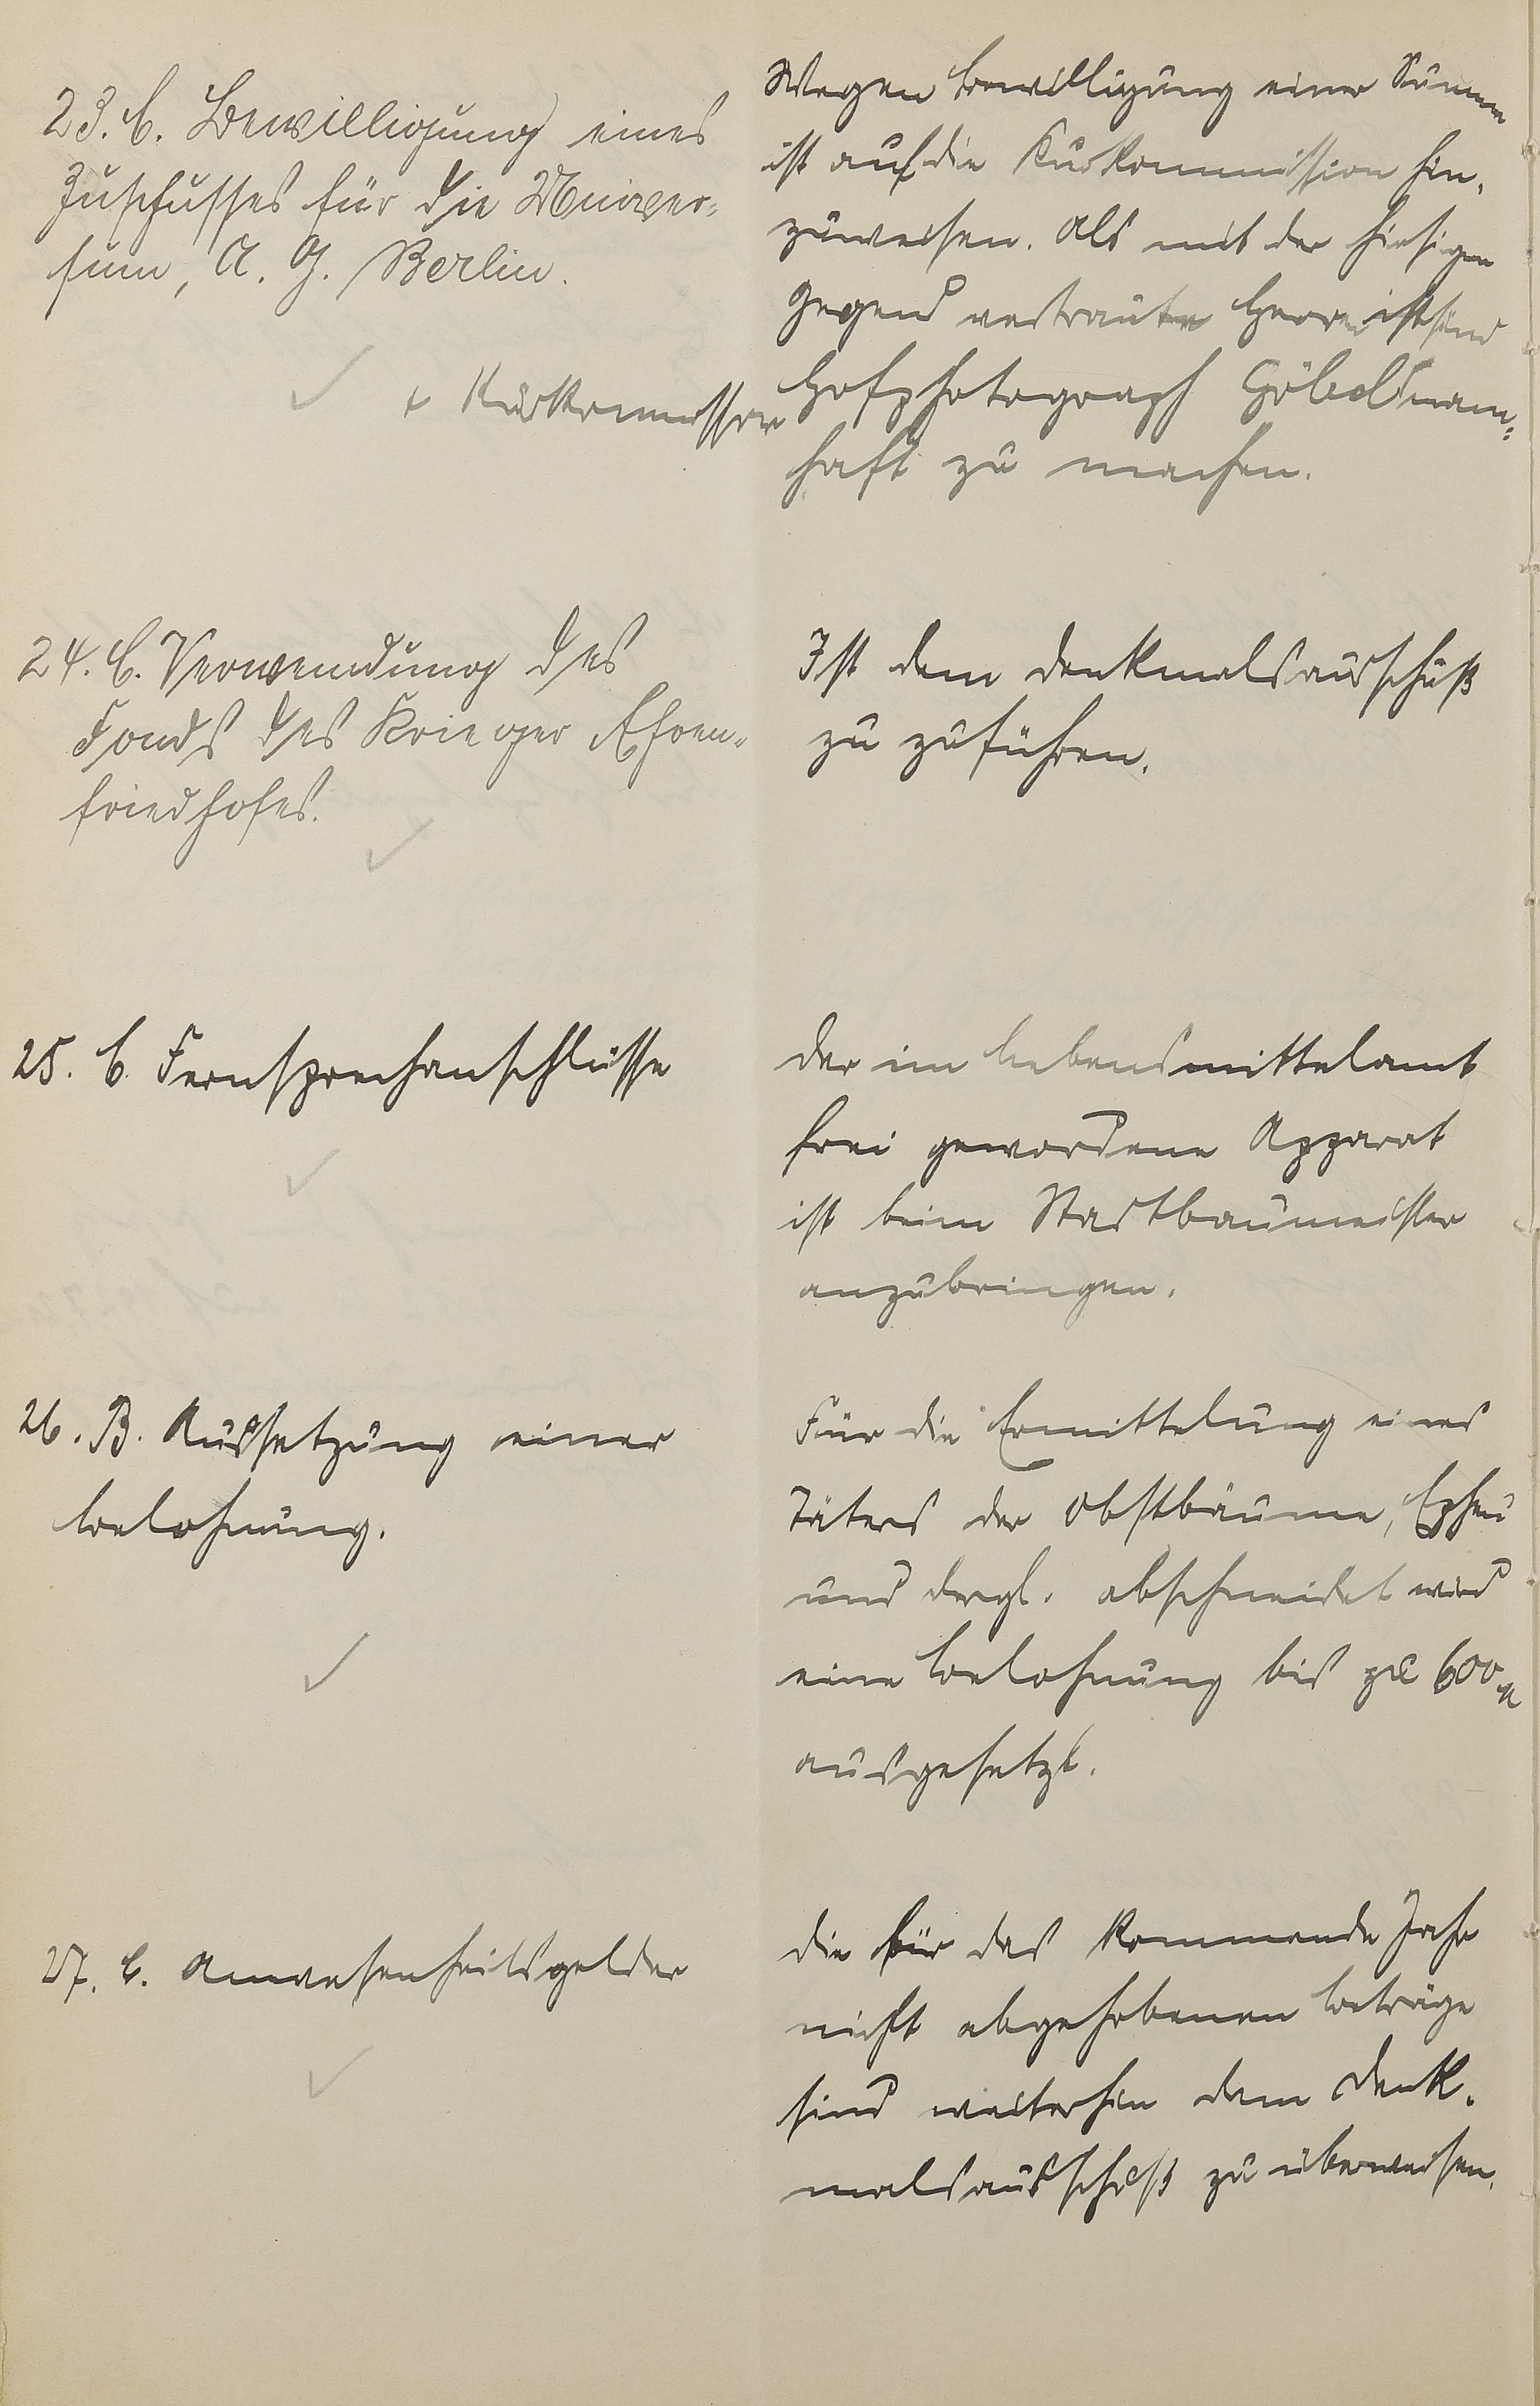 23. C. Bewilligung eines
Zuschusses für die Univer-
sum, A. G. Berlin.
+ Kurkommission
Wegen Bewilligung einer Summe
ist auf die Kurkommission hin-
zuweisen. Als mit der hiesigen
Gegend vertraute Herren sind
Hofphotograph Göbel nam-
haft zu machen.
24. C. Verwendung des
Fonds des Krieger Ehren-
friedhofes.
Ist dem Denkmalsausschuß
zu zuführen.
25. C. Fernsprechanschlüsse
Der im Lebensmittelamt
frei gewordene Apparat
ist beim Stadtbaumeister
anzubringen.
26. B. Aussetzung einer
Belohnung.
Für die Ermittelung eines
Täters der Obstbäume, Epheu
und dergl. abschneidet wird
eine Belohnung bis zu 600 M
ausgesetzt.
27. C. Anwesenheitsgelder
Die für das kommende Jahr
nicht abgehobenen Beträge
sind weiterhin dem Denk-
malsausschuß zu überweisen.